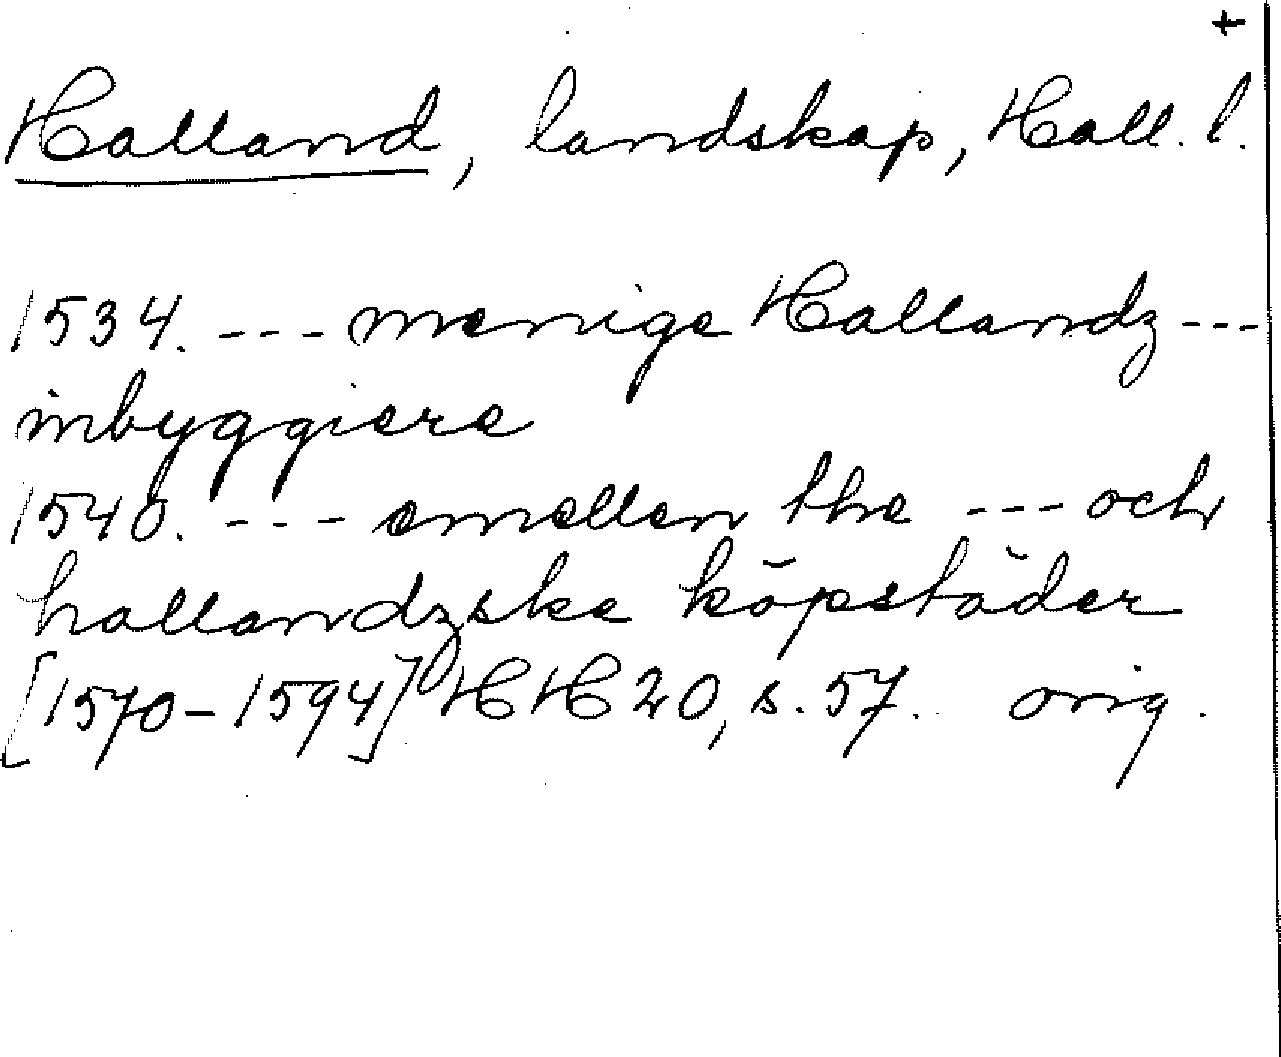 +
Halland, landskap, Hall. l.
1534. --- menige Hallandz ---
inbyggiere
1540. --- emellen the --- och
hallandzske köpstäder
[1570-1594] HH 20, s. 57. orig.